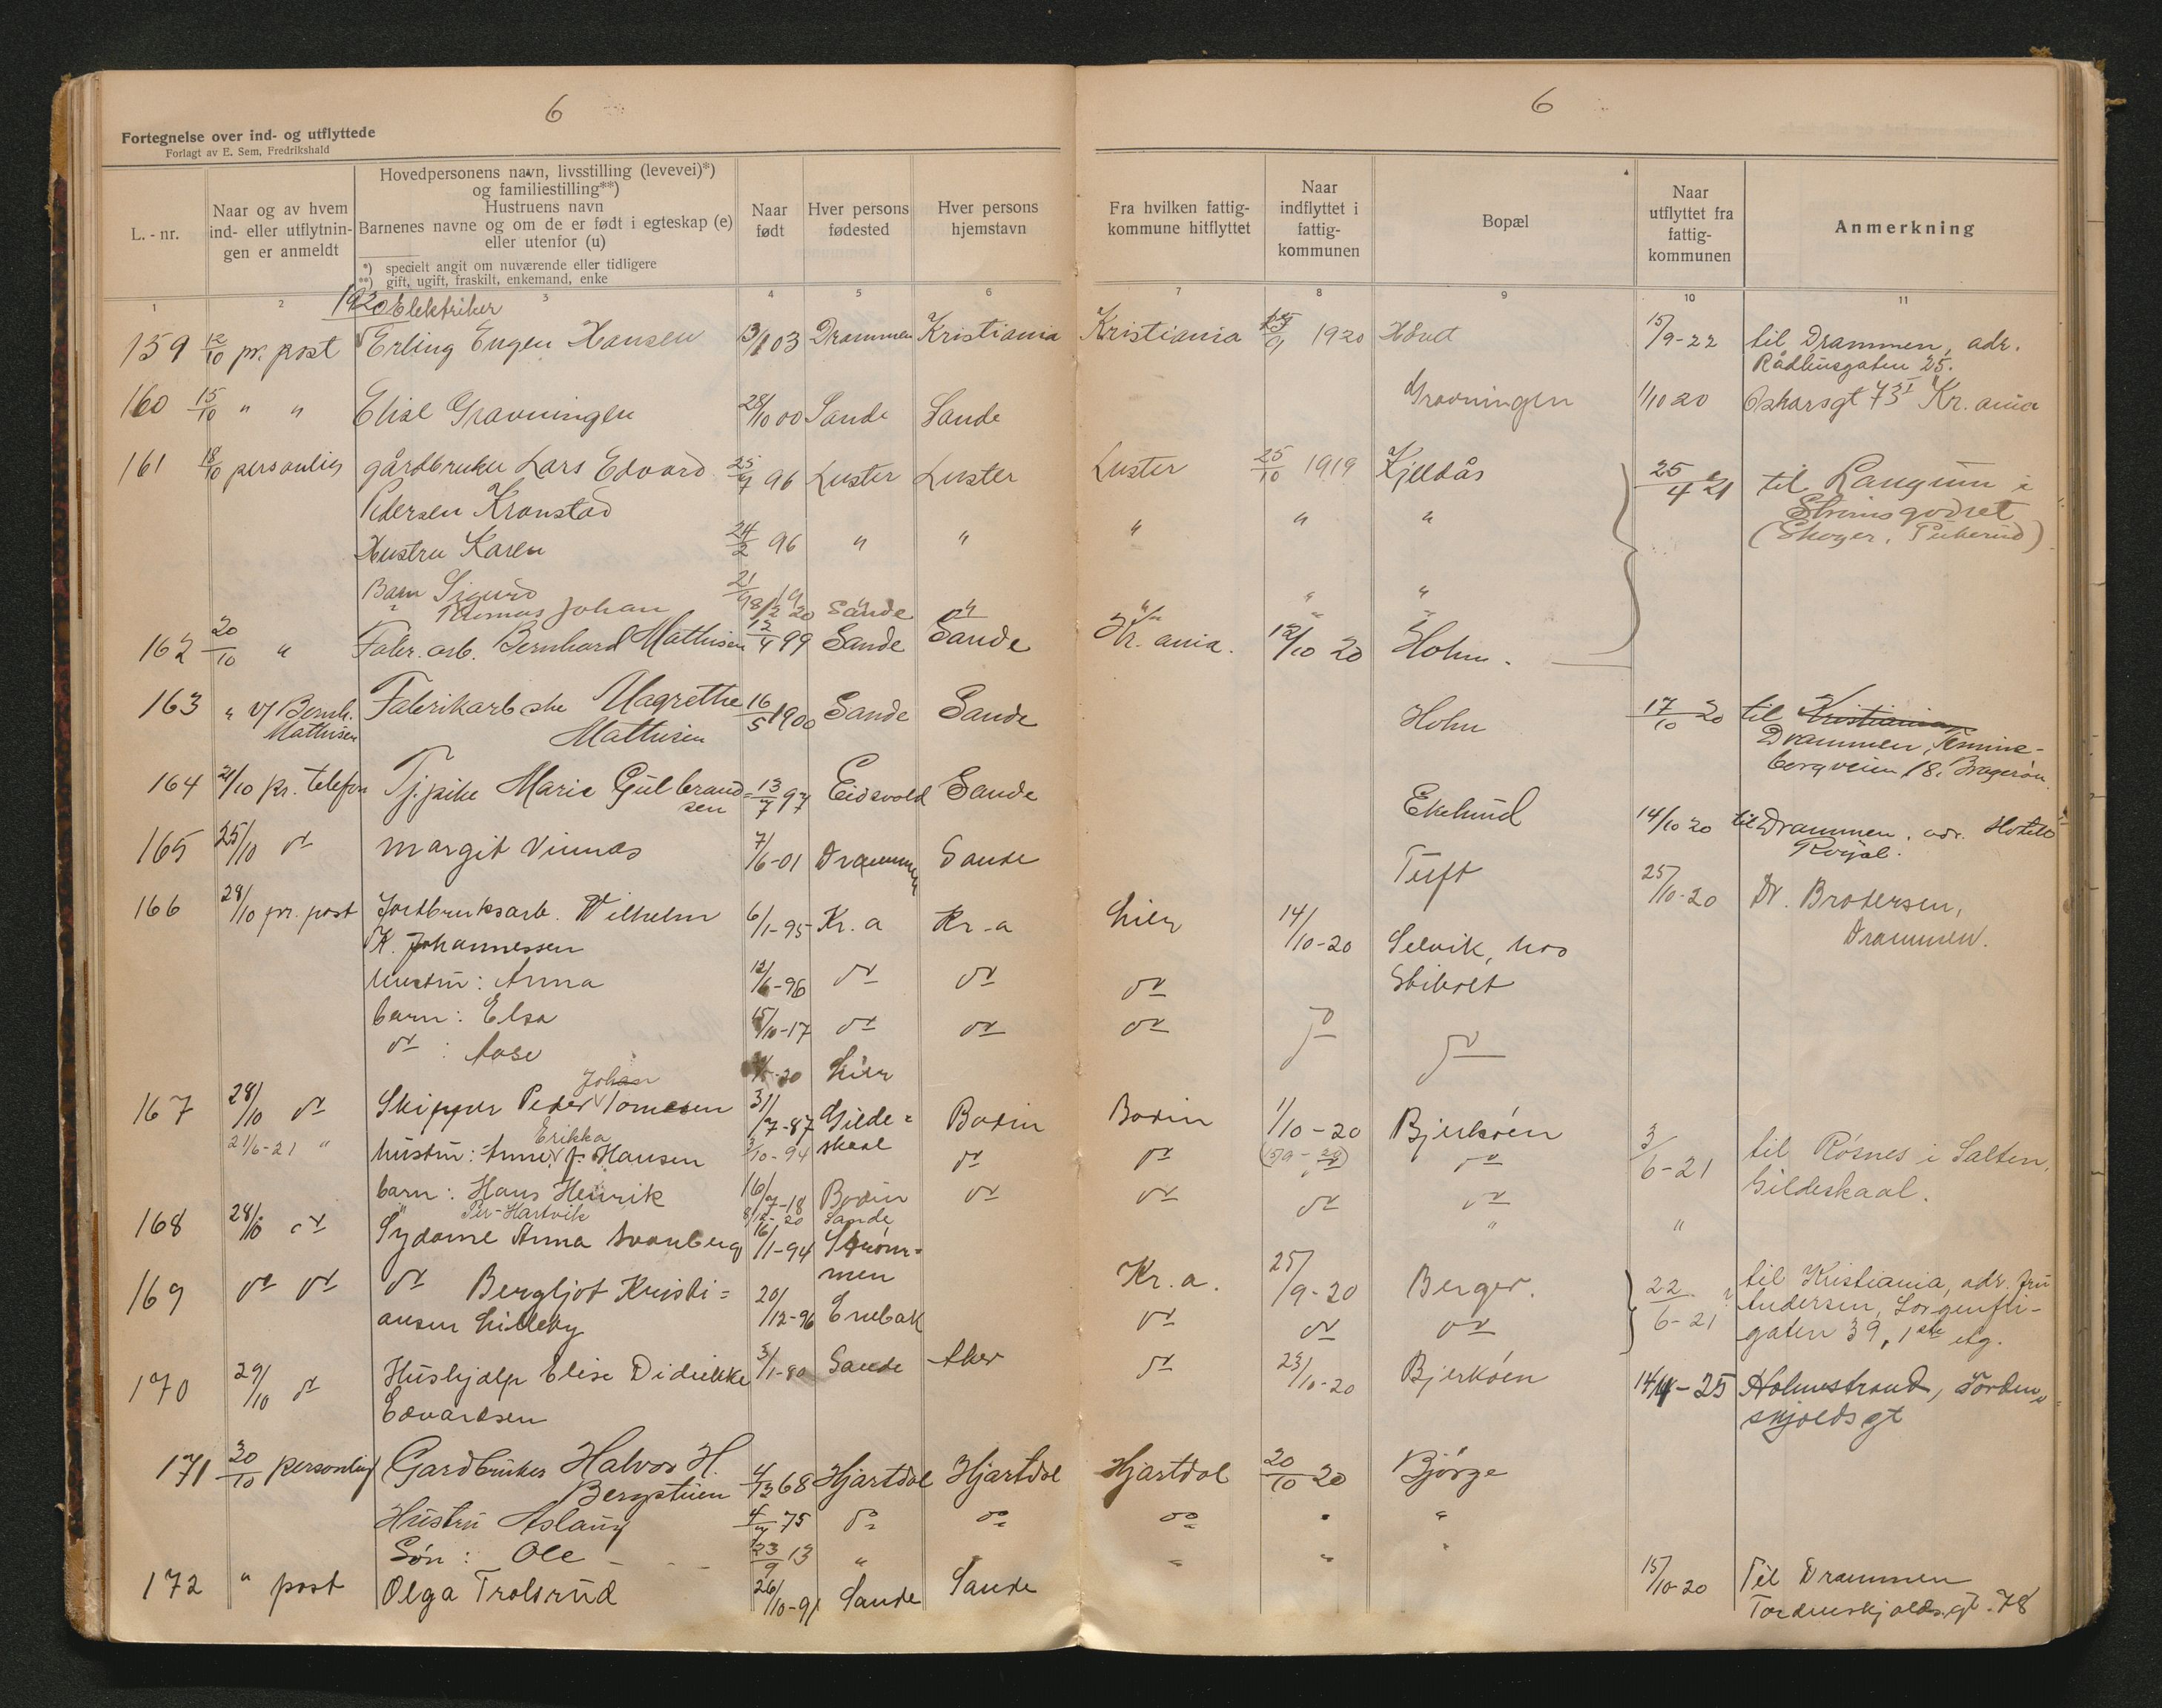 6
Fortegnelse over ind- og utflyttede
Forlagt av E. Sem, Fredrikshald
L.-nr.
Naar og av hvem
ind- eller utflytnin-
gen er anmeldt
Hovedpersonens navn, livsstilling (levevei)*)
og familiestilling**)
Hustruens navn
Barnenes navne og om de er født i egteskap (e)
eller utenfor (u)
*) specielt angit om nuværende eller tidligere
**) gift, ugift, fraskilt, enkemand, enke
Naar
født
Hver persons
fødested
Hver persons
hjemstavn
1 2 3 4 5 6
1920 Elektriker
159 12/10 pr. post Erling Eugen Hansen 3/1 03 Drammen Kristiania
160 15/10 " " Elise Gravningen 28/10 00 Sande Sande
161 18/10 personlig gårdbruker Lars Edvard 25/7 96 Luster Luster
Pedersen Kronstad
Hustru Karen 24/2 96 " "
Barn Sigurd 21/9 19 " "
" Rasmus Johan 18/2 20 Sande "
162 20/10 " Fabr. arb. Bernhard Mathisen 12/4 99 Sande Sande
163 " v/ Bernh. Fabrikarbske Magrethe 16/5 1900 Sande Sande
Mathisen Mathisen
164 21/10 pr. telefon Tj.pike Marie Gulbrand= 13/7 97 Eidsvold Sande
sen
165 25/10 do Margit Vinnæs 7/6-01 Drammen Sande
166 28/10 pr. post Jordbruksarb. Vilhelm 6/1-95 Kr.a Kr.a
K. Johannessen
hustru: Anna 12/6-96 do do
barn: Elsa 15/10-17 do do
do : Aase -20 Lier
Johan
167 28/10 do Skipper Peder Tomesen 31/7-87 Gilde= Bodin
Erikka
21/6-21 " hustru: Anne J. Hansen 3/10-94 skaal do
barn: Hans Henrik 16/7-18 Bodin do
" Per-Hartvik 8/12-20 Sande
168 28/10 do Sydame Anna Svanberg 16/1-94 Strøm=
men
169 do do do Bergljot Kristi= 20/12-96 Enebak
ansen Lilleby
170 29/10 do Hushjælp Elise Didrikke 3/1-80 Sande Aker
Edvardsen
171 30/10 personlig Gardbruker Halvor H. 4/3 68 Hjartdal Hjartdal
Bergstuen
Hustru Aslaug 4/7 75 do do
Søn: Ole 23/9 13 " "
172 " post Olga Trolsrud 26/10-91 Sande Sande
6
Fra hvilken fattig-
kommune hitflyttet
Naar
indflyttet i
fattig-
kommunen
Bopæl
Naar
utflyttet fra
fattig-
kommunen
Anmerkning
7 8 9 10 11
Kristiania 1920 15/9-22 til Drammen, adr.
Rådhusgaten 25.
Gravningen 1/10 20 Oskarsgt 73 I Kr.ania
Luster 25/10 1919 Kjeldås 25/4 21 til Langum i
Strømsgodset
" " " (Skoger, )
" " "
Kr.ania. 12/10 20 Holm.
Holm 17/10 20 til Kristiania
Drammen,
bergveien 18. Bragerøen
Ekelund 14/10 20 til Drammen. adr. Hotell
Royal.
Tuft 25/10-20 Dr. Brodersen,
Drammen.
Lier 14/10-20 Selvik, hos
do
do do do
Bodin 1/10-20 Bjerkøen 3/6-21 til Røsnes i Salten,
do do Gildeskaal.
do do do
" "
Kr.a. 25/9-20 Berger. 22/6-21 til Kristiania, adr. fru
do do do Andersen, Sorgenfri-
gaten 39, 1ste etg.
do 23/10-20 Bjerkøen 14/4-25 Holmestrand, Torden=
skjoldsgt
Hjartdal 20/10 20 Bjørge
do " "
" " "
15/10-20 Til Drammen
Tordenskjoldsgt. 78